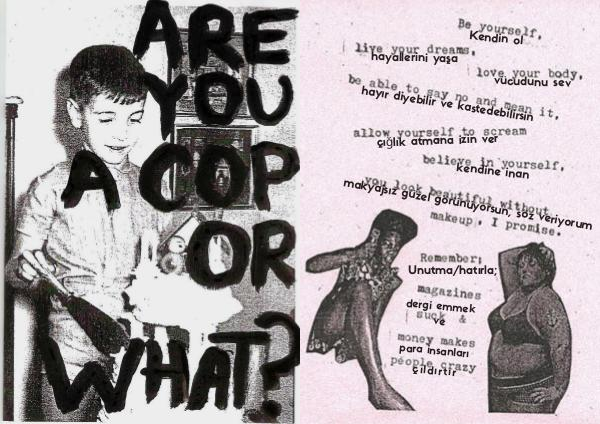 ARE
YOU
A COP
OR
WHAT?
Be yourself,
Kendin ol
live your dreams,
hayallerini yaşa
love your body,
vücudunu sev
be able to say no and mean it,
hayır diyebilir ve kastedebilirsin
allow yourself to scream
çığlık atmana izin ver
believe in yourself,
kendine inan
you look beautiful without
makyajsız güzel görünüyorsun, söz veriyorum
makeup, I promise.
Remember;
Unutma/hatırla;
magazines
dergi emmek
suck &
ve
money makes
para insanları
people crazy
çıldırtır